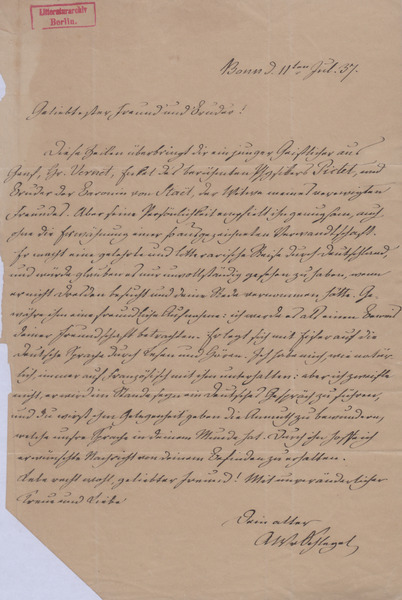 Litteraturarchiv
Berlin.
Bonn d. 11ten Jul. 37.
Geliebtester Freund und Bruder!
Diese Zeilen überbringt dir ein junger Geistlicher aus
Genf, Hr. Vernet, Enkel des berühmten Physikers Pictet, und
Bruder der Baronin von Stael, der Witwe meines verewigten
Freundes. Aber seine Persönlichkeit empfiehlt ihn genugsam, auch
ohne die Erwähnung einer so ausgezeichneten Verwandtschaft.
Er macht eine gelehrte und litterarische Reise durch Deutschland,
und würde glauben es nur unvollständig gesehen zu haben, wenn
er nicht Dresden besucht und deine Rede vernommen hätte. Ge-
währe ihm eine freundliche Aufnahme: ich werde es als einen Beweis
deiner Freundschaft betrachten. Er legt sich mit Eifer auf die
deutsche Sprache durch Lesen und Hören. Ich habe mich, wie natür-
lich, immer auf Französisch mit ihm unterhalten: aber ich zweifle
nicht, er wird im Stande seyn ein deutsches Gespräch zu führen,
und du wirst ihm Gelegenheit geben die Anmuth zu bewundern,
welche unsre Sprache in deinem Munde hat. Durch ihn hoffe ich
erwünschte Nachricht von deinem Befinden zu erhalten.
Lebe recht wohl, geliebter Freund! Mit unveränderlicher
Treue und Liebe
Dein alter
AWvSchlegel